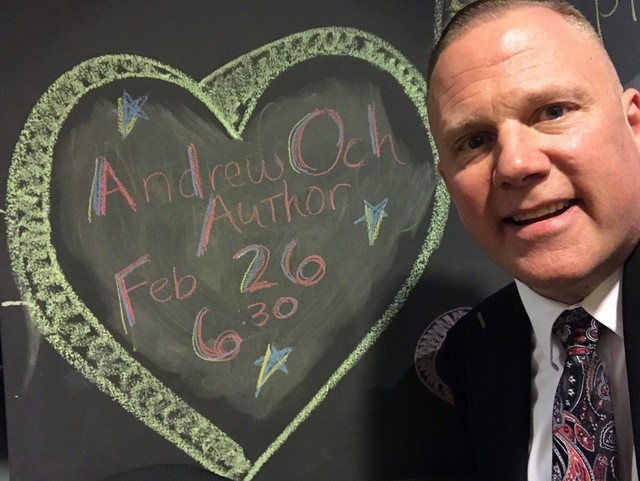 Andrew Och
Author
Feb 26
6:30